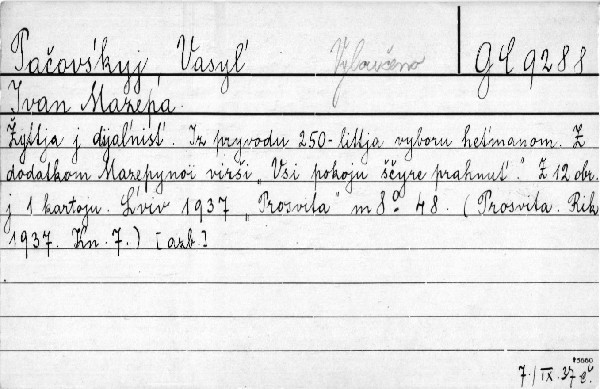 Pačovśkyj, Vasyľ Vyloučeno GE 9288
Ivan Mazepa.
Žyttja j dijaľnisť. Iz pryvodu 250-littja vyboru heťmanom. Z
dodatkom Mazepynoi virši „Vsi pokoju ščyre prahnuť." Z 12 obr.
j 1 kartoju. Ľviv 1937 „Prosvita" m 8° 48. (Prosvita. Rik
1937. Kn. 7.) [azb.]
15660
7./IX.37